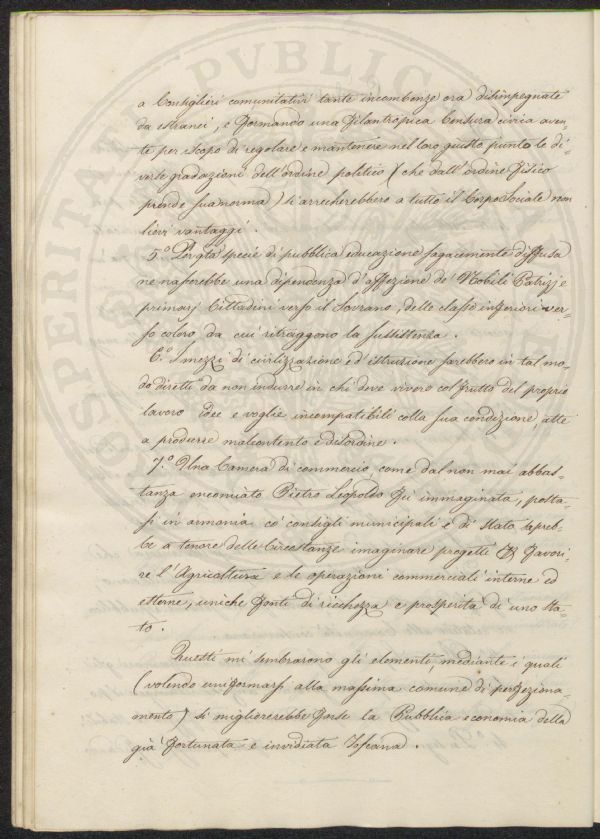 a Consiglieri comunitativi tante incombenze ora disimpegnate
da estranei, e formando una filantropica Censura civica aven-
te per iscopo di regolare e mantenere nel loro giusto punto le di-
verse gradazioni dell'ordine politico (che dall'ordine fisico
prende sua norma) si arrecherebbero a tutto il Corpo Sociale non
lievi vantaggi.
5.° Per q.ta specie di pubblica educazione sagacemente diffusa
ne nascerebbe una dipendenza d'affezione de' Nobili Patrizj e
primarj Cittadini verso il Sovrano, delle classi inferiori ver-
so coloro da cui ritraggono la sussistenza.
6.° I mezzi di civilizzazione ed istruzione sarebbero in tal mo-
do diretti da non indurre in chi deve vivere col frutto del proprio
lavoro idee e voglie incompatibili colla sua condizione atte
a produrre malcontento e disordine.
7.° Una Camera di commercio, come dal non mai abbas-
tanza encomiato Pietro Leopoldo fu immaginata, posta-
si in armonia co' consigli municipali e di Stato saprebb-
be a tenore delle Circostanze imaginare progetti favori-
re l'Agricoltura e le operazioni commerciali interne ed
esterne, uniche fonti di ricchezza e prosperità di uno Sta-
to.
Questi mi sembrarono gli elementi, mediante i quali
(volendo uniformarsi alla massima comune di perfeziona-
mento) si migliorerebbe forse la Pubblica economia della
già fortunata e invidiata Toscana.
PUBLICA
PROSPERITAT